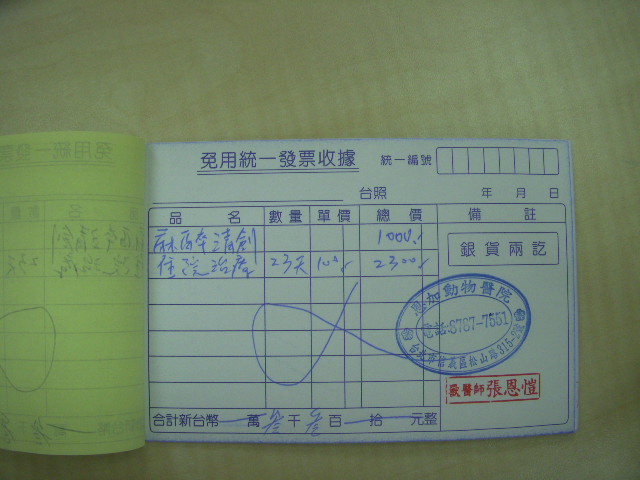 免用統一發票收據
統一編號
台照 年 月 日
品 名 數量 單價 總價 備 註
麻醉清創 1000
住院治療 23天 100 2300
銀貨兩訖
恩加動物醫院
電話:8787-7551
台北市信義區松山路315-2號
獸醫師 張恩愷
合計新台幣 萬 叁 千 叁 百 拾 元整